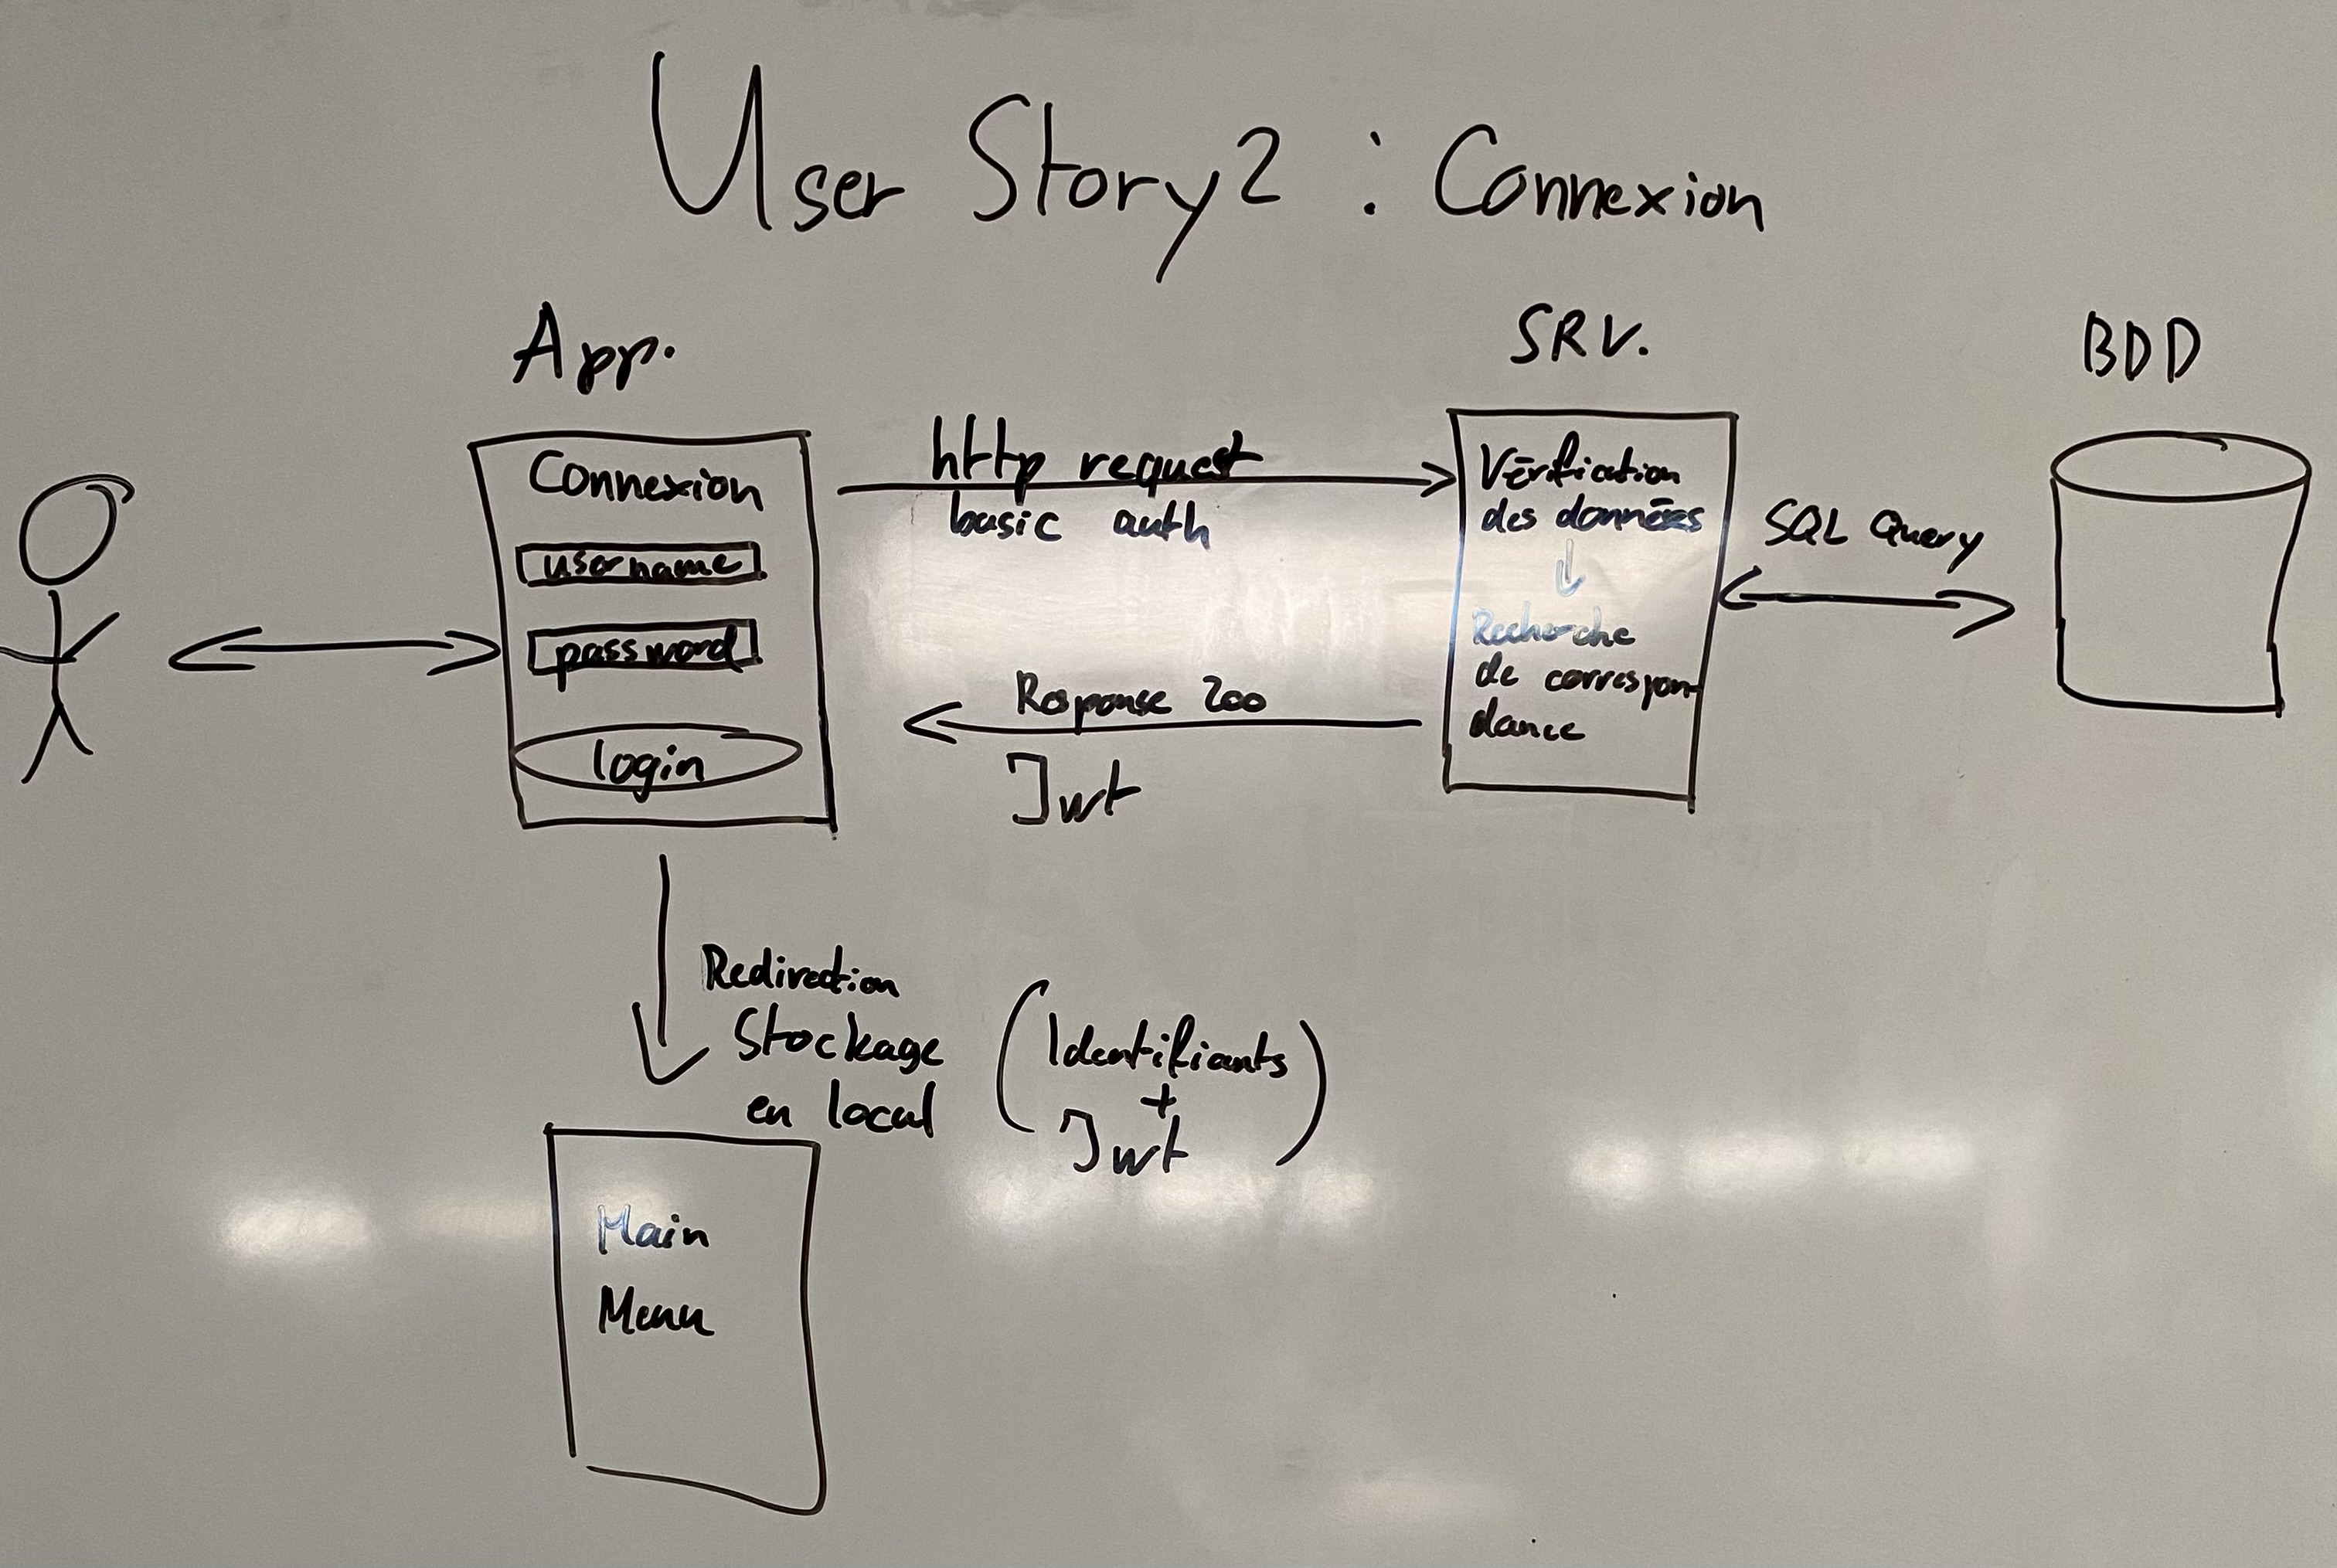 User Story 2 : Connexion
App.
SRV.
BDD
Connexion
username
password
login
http request
basic auth
Response 200
Jwt
Vérification
des données
↓
Recherche
de correspon-
dance
SQL Query
Redirection
Stockage
en local
(Identifiants
+
Jwt)
Main
Menu